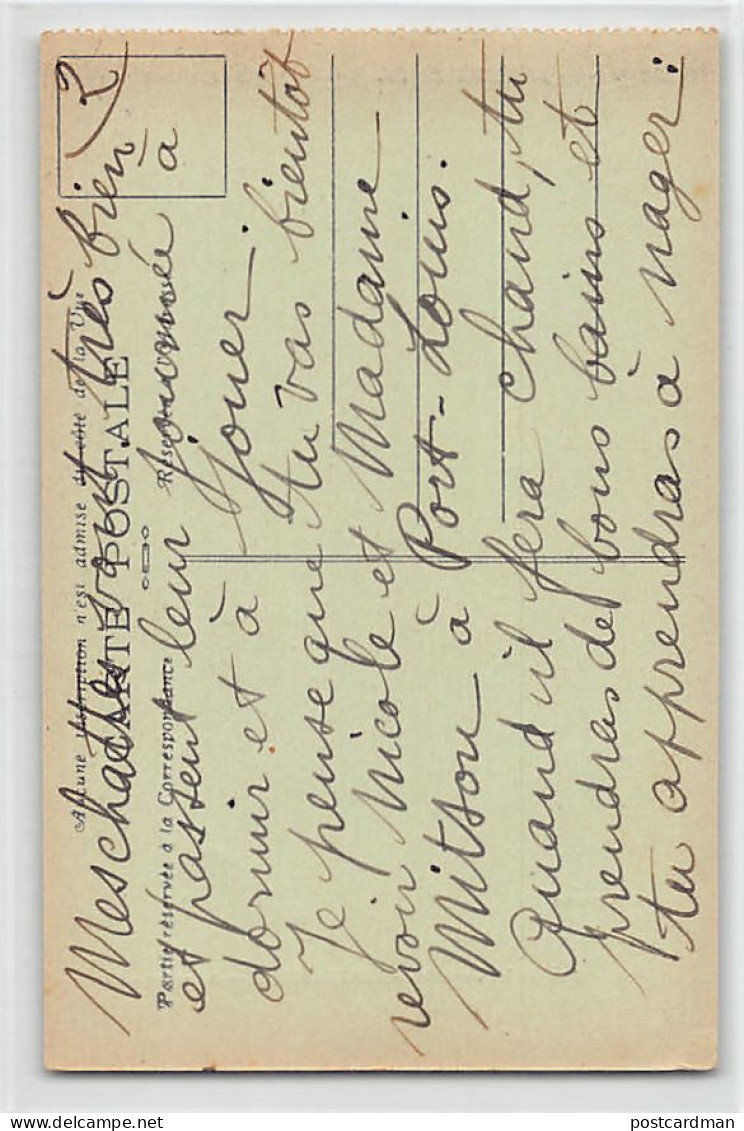 2
Aucune inscription n'est admise du côté de la Vue
CARTE POSTALE
Partie réservée à la Correspondance
Mes chattes vont très bien
et passent leur journée à
dormir et à jouer.
Je pense que tu vas bientôt
revoir Nicole et Madame
Mitson à Port-Louis.
Quand il fera chaud, tu
prendras de bons bains et
tu apprendras à nager.
postcardman